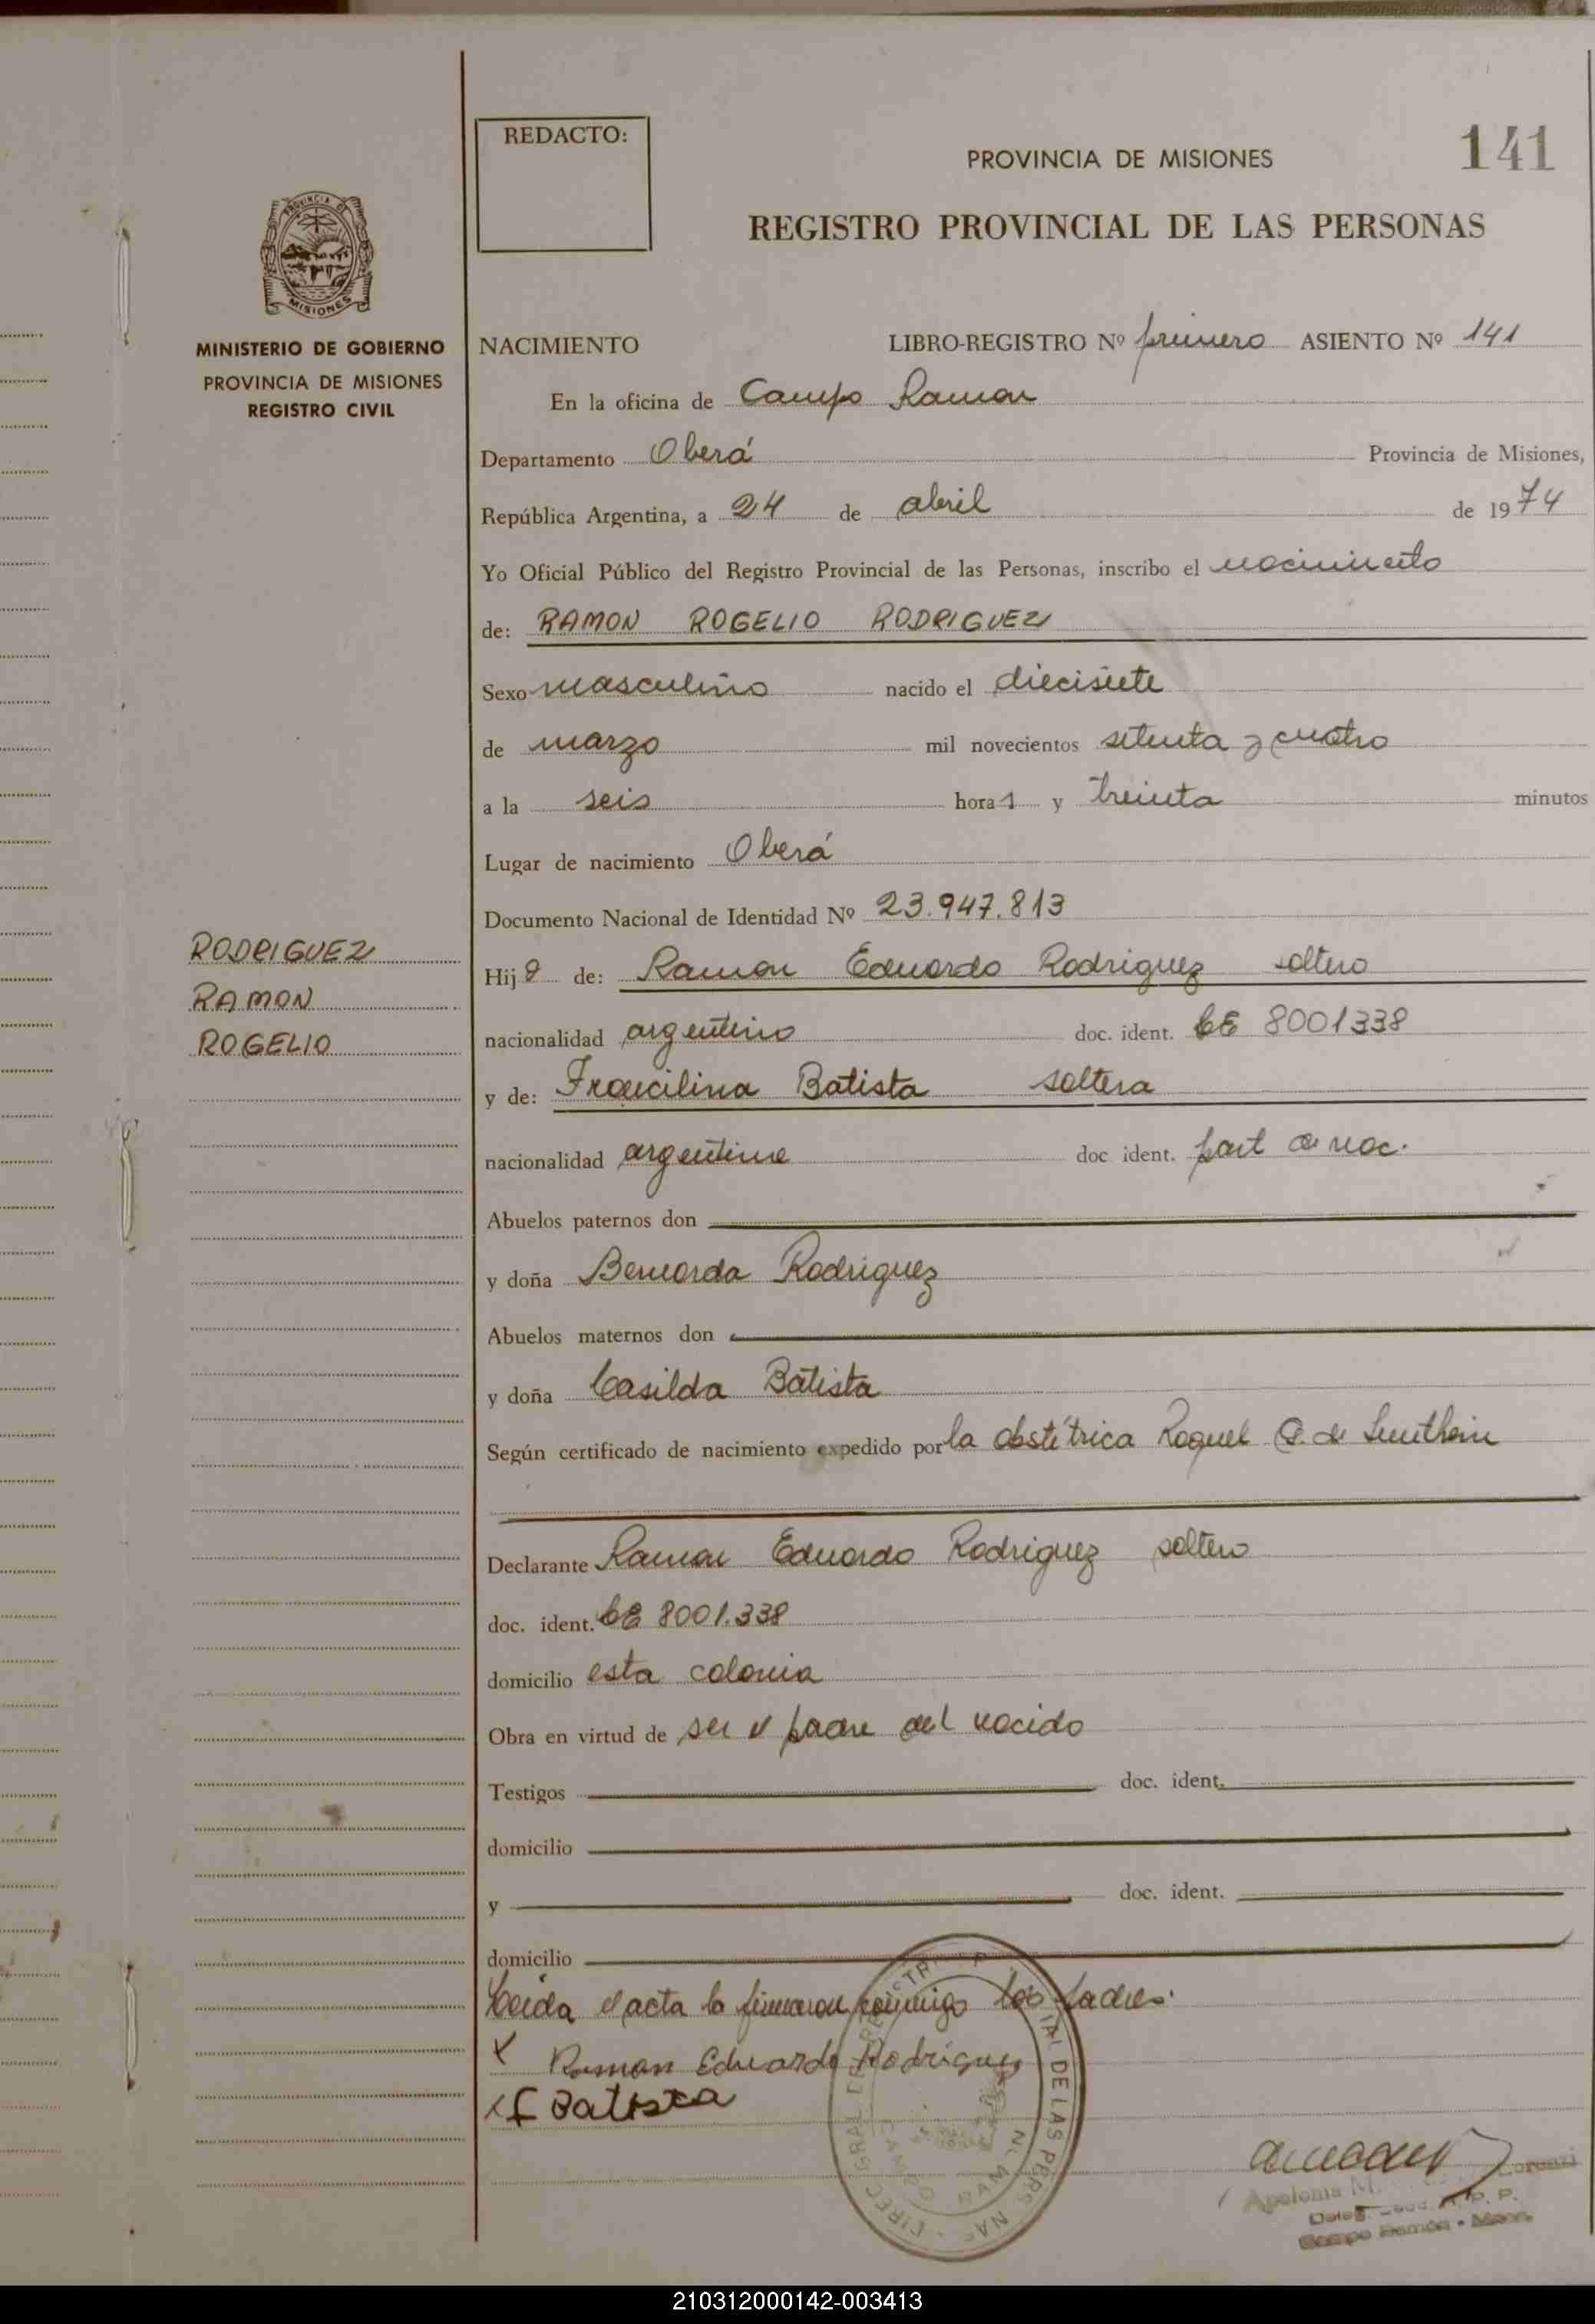 REDACTO:
PROVINCIA DE MISIONES
141
REGISTRO PROVINCIAL DE LAS PERSONAS
PROVINCIA DE
MISIONES
MINISTERIO DE GOBIERNO
PROVINCIA DE MISIONES
REGISTRO CIVIL
NACIMIENTO LIBRO-REGISTRO Nº primero ASIENTO Nº 141
En la oficina de Campo Ramon
Departamento Oberá Provincia de Misiones,
República Argentina, a 24 de abril de 1974
Yo Oficial Público del Registro Provincial de las Personas, inscribo el nacimiento
de: RAMON ROGELIO RODRIGUEZ
Sexo masculino nacido el diecisiete
de marzo mil novecientos setenta y cuatro
a la seis horas y treinta minutos
Lugar de nacimiento Oberá
Documento Nacional de Identidad Nº 23.947.813
RODRIGUEZ
RAMON
ROGELIO
Hijo de: Ramon Eduardo Rodriguez soltero
nacionalidad argentino doc. ident. CE 8001338
y de: Francilina Batista soltera
nacionalidad argentina doc ident. part de nac.
Abuelos paternos don
y doña Bernarda Rodriguez
Abuelos maternos don
y doña Casilda Batista
Según certificado de nacimiento expedido por la obstétrica Raquel de
Declarante Ramon Eduardo Rodriguez soltero
doc. ident. CE 8001.338
domicilio esta colonia
Obra en virtud de ser el padre del nacido
Testigos doc. ident.
domicilio
y doc. ident.
domicilio
Leida el acta la firmaron conmigo los padres.
x Ramon Eduardo Rodriguez
x f Batista
DE LAS PERS
CAMPO RAMON
Apolonia M.
R. P. P.
Campo Ramón - Mnes.
210312000142-003413